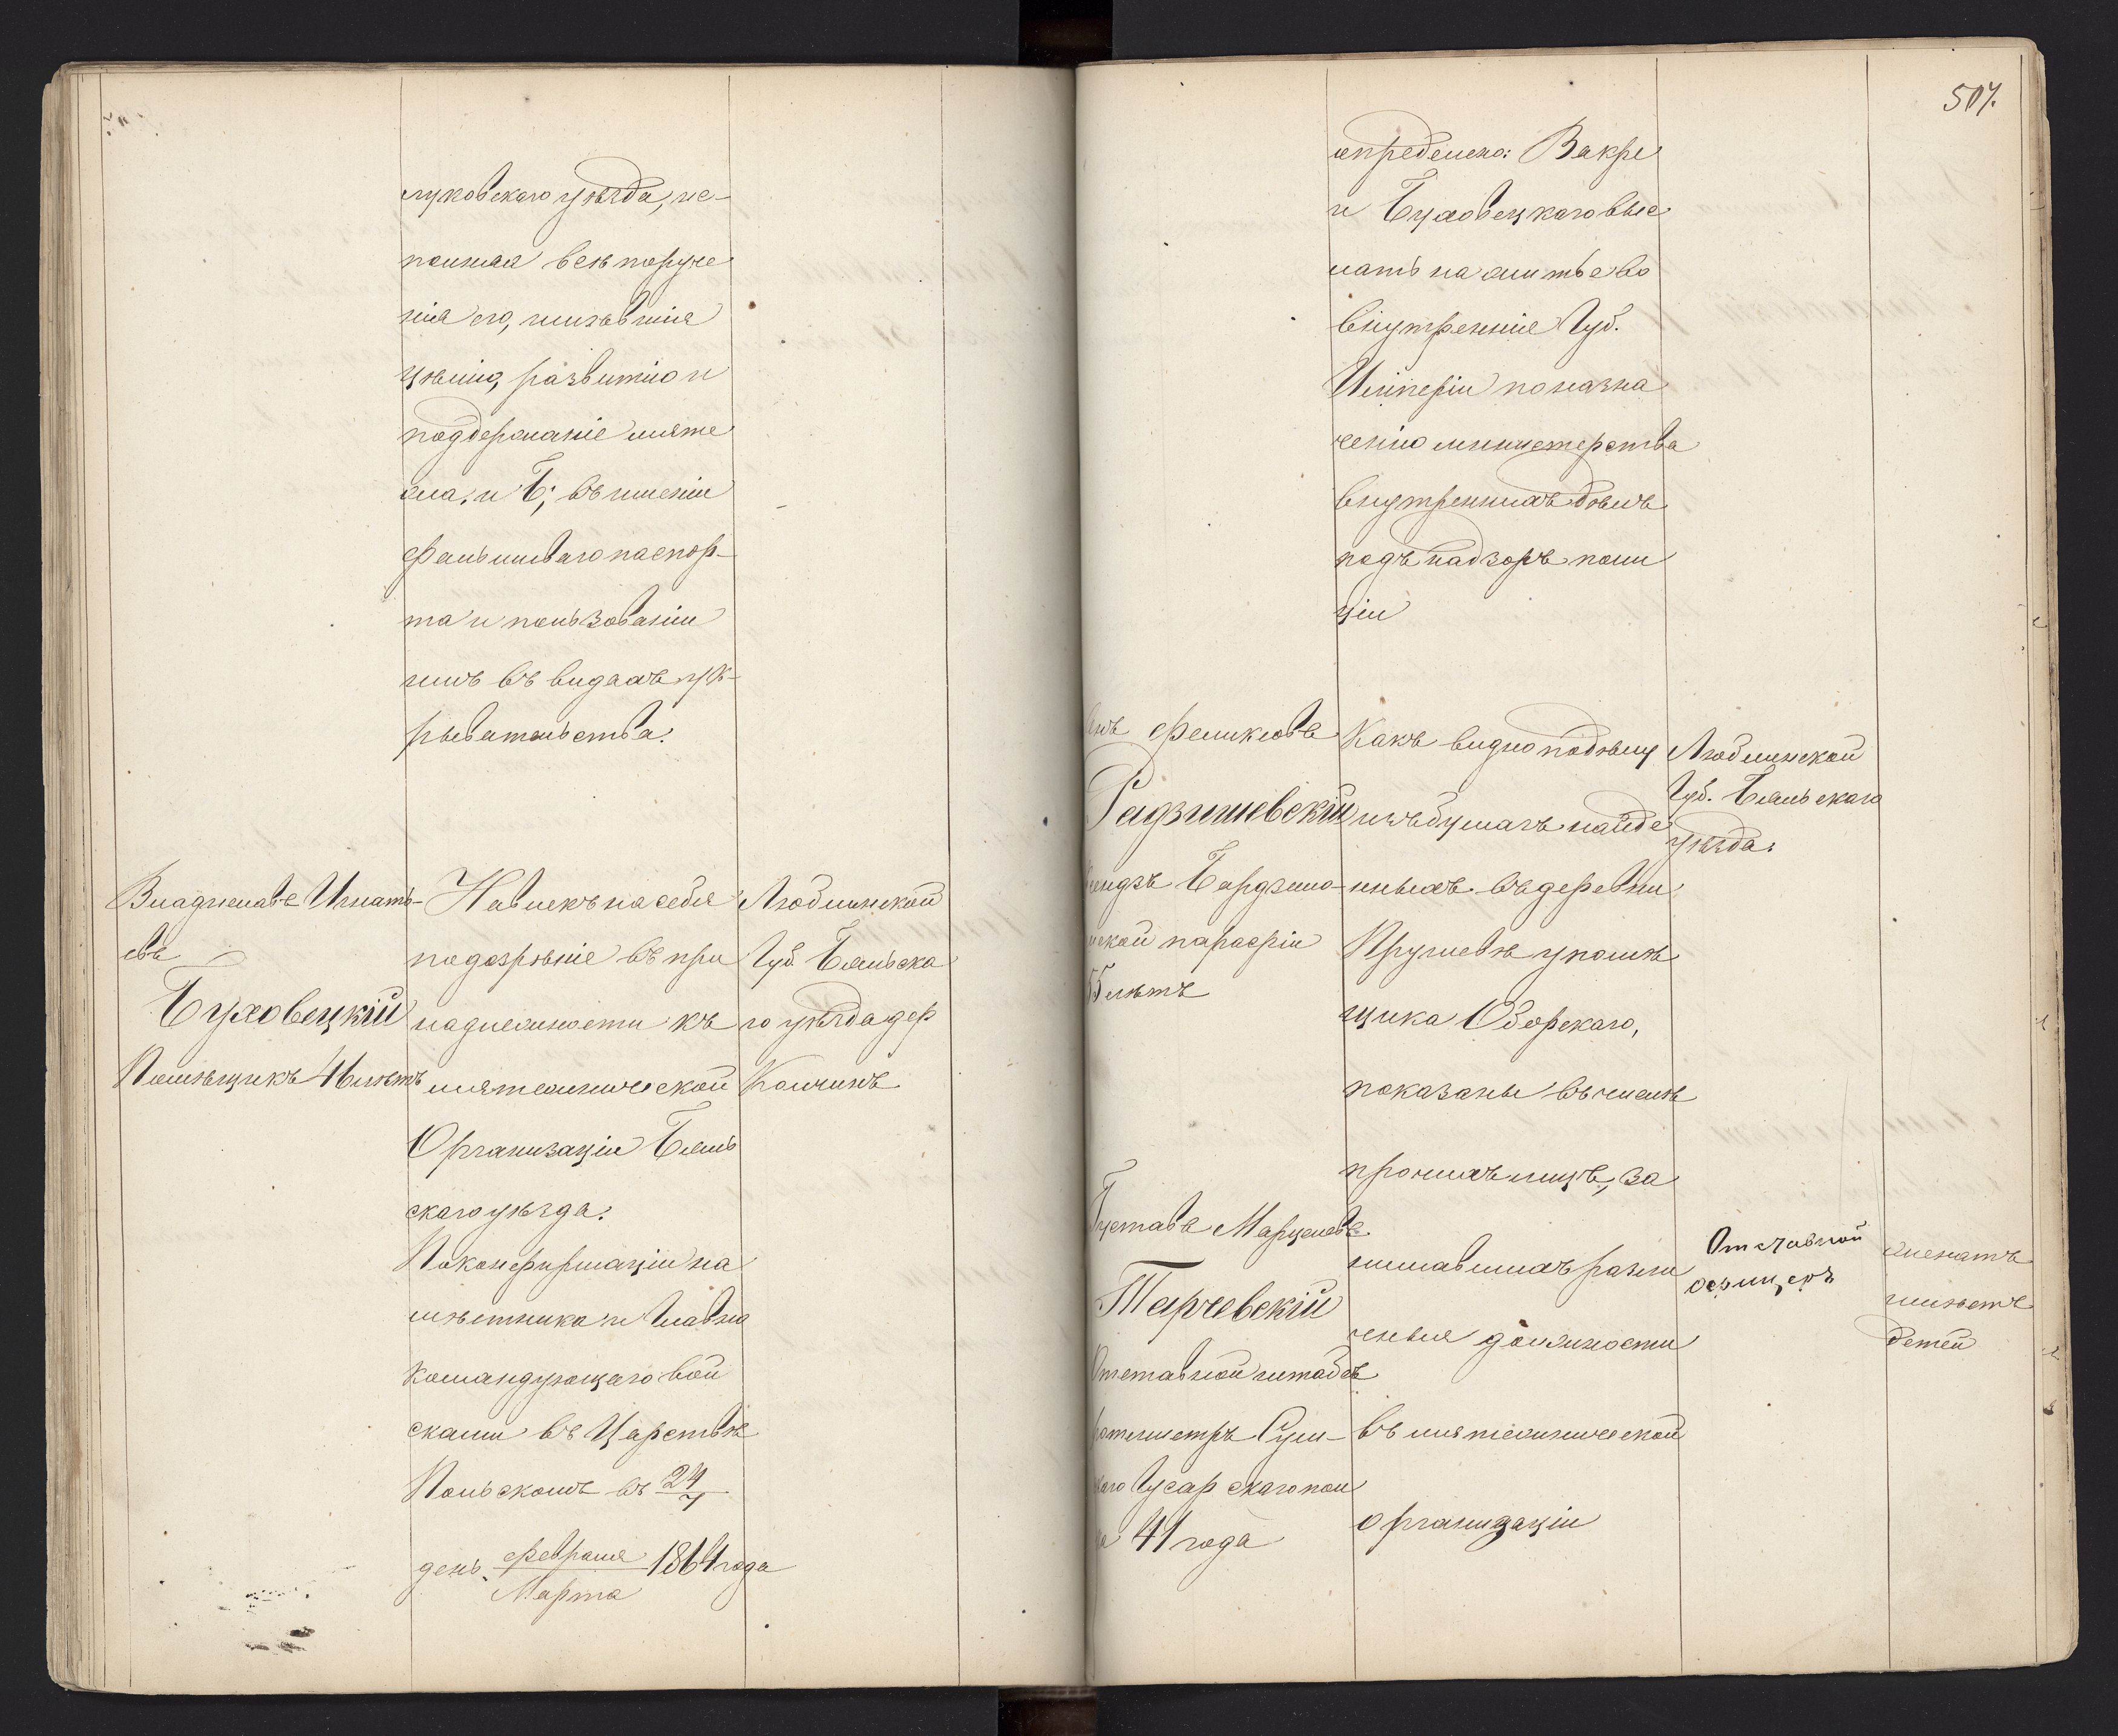 луковскаго уѣзда, ис-
полняя всѣ поруче
нія его, имѣвшія
цѣлію, развитіе и
поддержаніе мяте
жа, и Б; въ имѣніи
фальшиваго паспор-
та и пользованіи
имъ въ видахъ ук-
рывательства.
Владиславъ Игнать-
евъ
Буховецкій
Помѣщикъ 46 лѣтъ
Навлекъ на себя
подозрѣніе въ при
надлежности къ
мятежнической
Организаціи Бяль
скаго уѣзда.
По конфирмаціи на
мѣстника и Главно
командующаго вой
сками въ Царствѣ
Польскомъ въ 24/7
день Февраля/Марта 1864 года
Люблинской
Губ. Бяльска
го уѣзда дер
Кольчинъ
507.
опредѣлено: Вакре
и Буховецкаго выс
лать на житье во
внутреннія Губ.
Имперіи по назна
ченію министерства
внутреннихъ дѣлъ
подъ надзоръ поли
ціи
Феликсовъ
Радзишевскій
Бардзило-
вской парафіи
55 лѣтъ
Какъ видно по дѣлу
изъ бумагъ найде
нныхъ въ деревни
Прушевѣ у помѣ
щика Оборскаго,
показаны въ числѣ
прочихъ лицъ, за
нимавшихъ разли
чныя должности
въ мятежнической
организаціи
Люблинской
Губ. Бяльскаго
уѣзда.
Густавъ Марцелевъ
Тарчевскій
Отставной штабсъ
ротмистръ Сум-
скаго Гусарскаго пол
ка 41 года
Отставной
офицеръ
женатъ
имѣетъ
детей